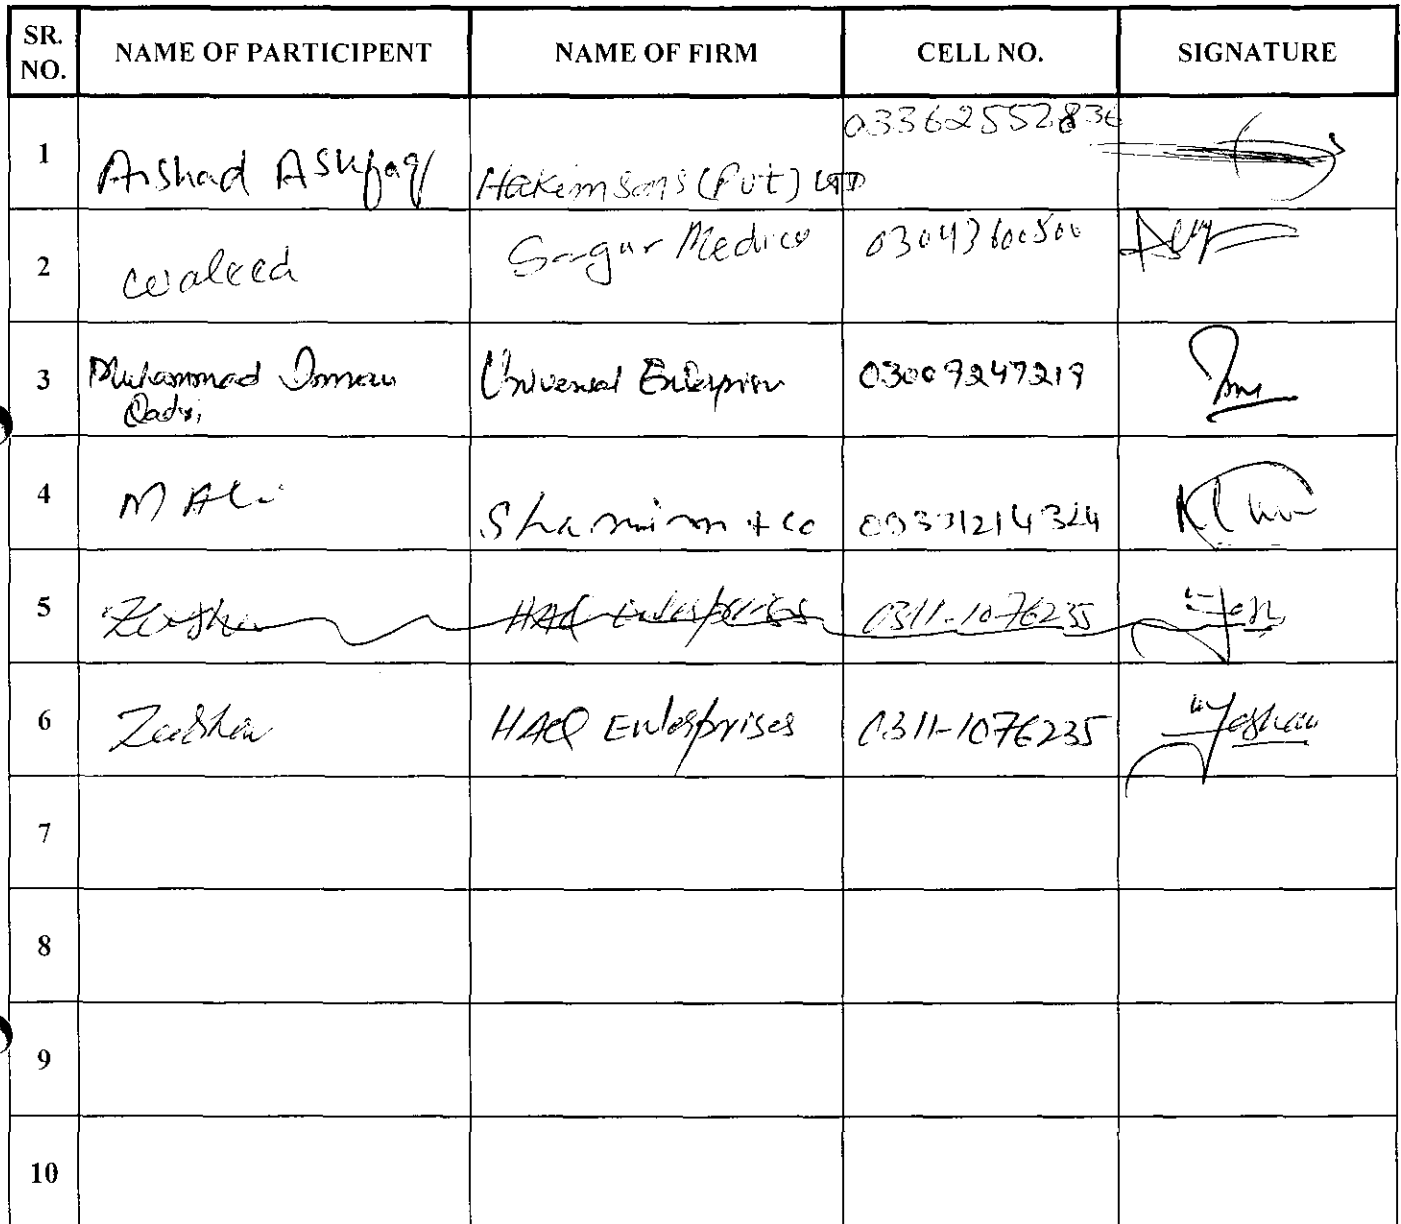 SR. NO. NAME OF PARTICIPENT NAME OF FIRM CELL NO. SIGNATURE
1 Arshad Ashfaq Hakimsons (Pvt) LTD 03362552836
2 Waleed Medico 03043600500
3 Muhammad Imran Universal Enterprises 03009247219
Qadri
4 M Ali Shamim + Co
5 Zeesha HAQ Enterprises 0311-1076235
6 Zeesha HAQ Enterprises 0311-1076235 Zeshan
7
8
9
10